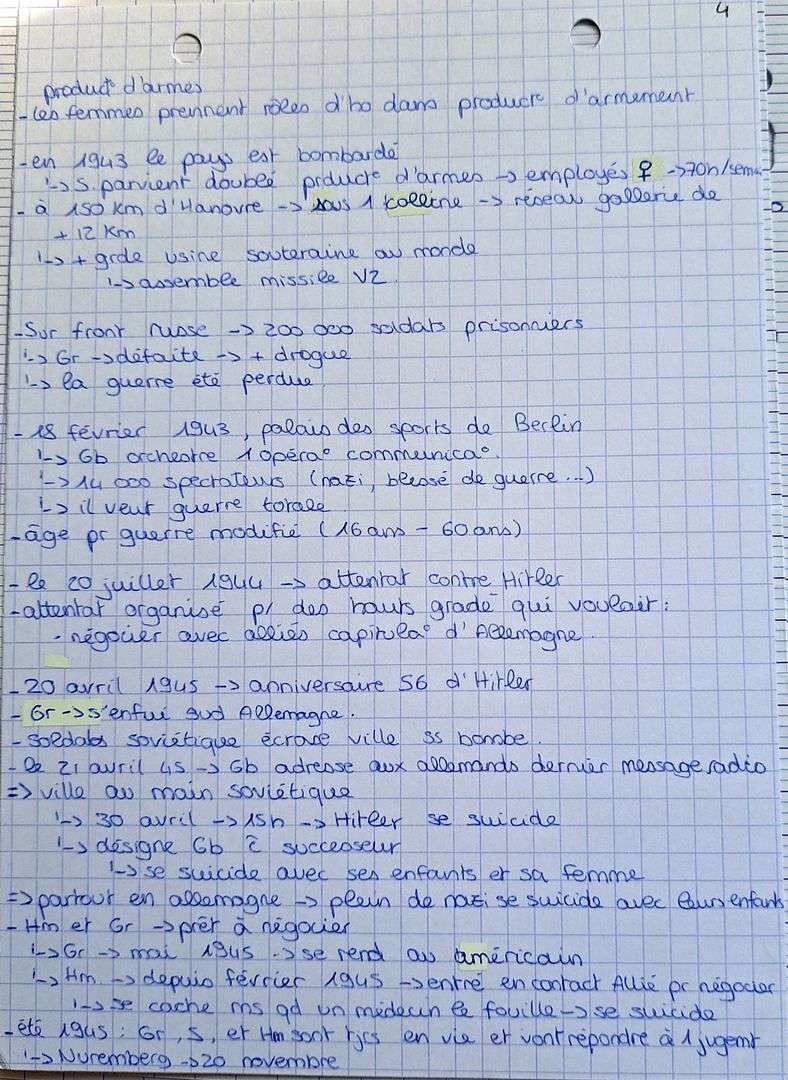 4
product° d'armes
- les femmes prennent rôles d'ho dans product° d'armement
- en 1943 le pays est bombardé
↳ S. parvient doublé prduct° d'armes → employés ♀ → 70h/sem
- à 150 km d'Hanovre → sous 1 colline → réseau gallerie de
+ 12 km
↳ + grde usine souteraine au monde
↳ assemble missile V2
- Sur front russe → 200 000 soldats prisonniers
↳ Gr → défaite → + drogue
↳ la guerre été perdue
- 18 février 1943, palais des sports de Berlin
↳ Gb orchestre 1 opéra° communica°.
↳ 14 000 spectateurs (nazi, blessé de guerre...)
↳ il veut guerre totale
- âge pr guerre modifié (16 ans - 60 ans)
- le 20 juillet 1944 → attentat contre Hitler
- attentat organisé p/ des hauts gradé qui voulait :
· négocier avec alliés capitula° d'Allemagne.
- 20 avril 1945 → anniversaire 56 d'Hitler
- Gr → s'enfui sud Allemagne.
- soldats soviétique écrase ville ss bombe.
- le 21 avril 45 → Gb adresse aux allemands dernier message radio
=> ville au main soviétique
↳ 30 avril → 15h → Hitler se suicide
↳ désigne Gb c̃ successeur
↳ se suicide avec ses enfants et sa femme
=> partout en allemagne → plein de nazi se suicide avec leurs enfants
- Hm et Gr → prêt à négocier
↳ Gr → mai 1945 → se rend au américain
↳ Hm → depuis février 1945 → entre en contact Allié pr négocier
↳ se cache ms qd un médecin le fouille → se suicide
- été 1945 : Gr, S, et Hm sont tjrs en vie et vont répondre à 1 jugemt
↳ Nuremberg → 20 novembre